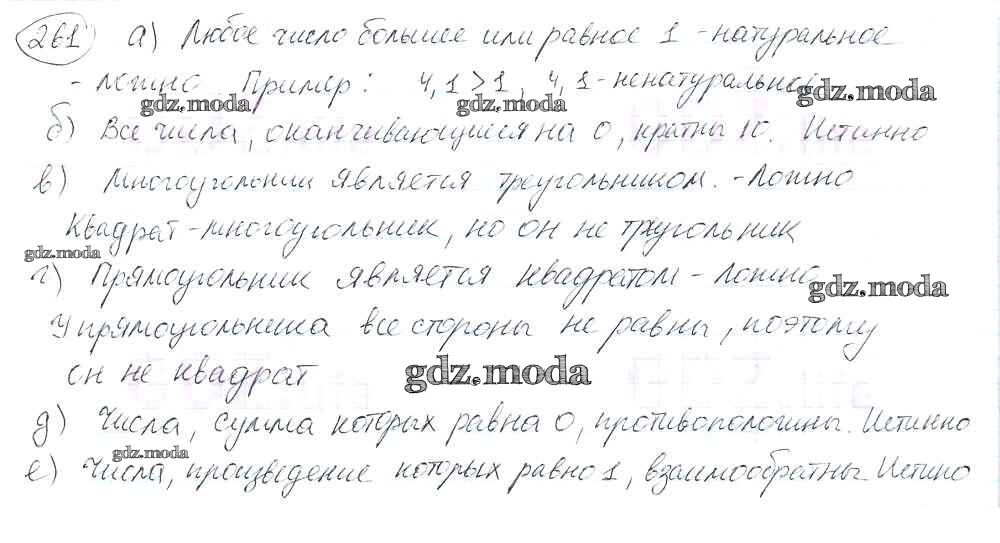 261 а) Любое число большее или равное 1 - натуральное
- ложно. Пример: 4,1 > 1, 4,1 - ненатуральное
gdz.moda gdz.moda gdz.moda
б) Все числа, оканчивающиеся на 0, кратны 10. Истинно
в) Многоугольник является треугольником. - Ложно
Квадрат - многоугольник, но он не треугольник
gdz.moda
г) Прямоугольник является квадратом - Ложно
gdz.moda
У прямоугольника все стороны не равны, поэтому
он не квадрат gdz.moda
д) Числа, сумма которых равна 0, противоположны. Истинно
gdz.moda
е) Числа, произведение которых равно 1, взаимообратны. Истино